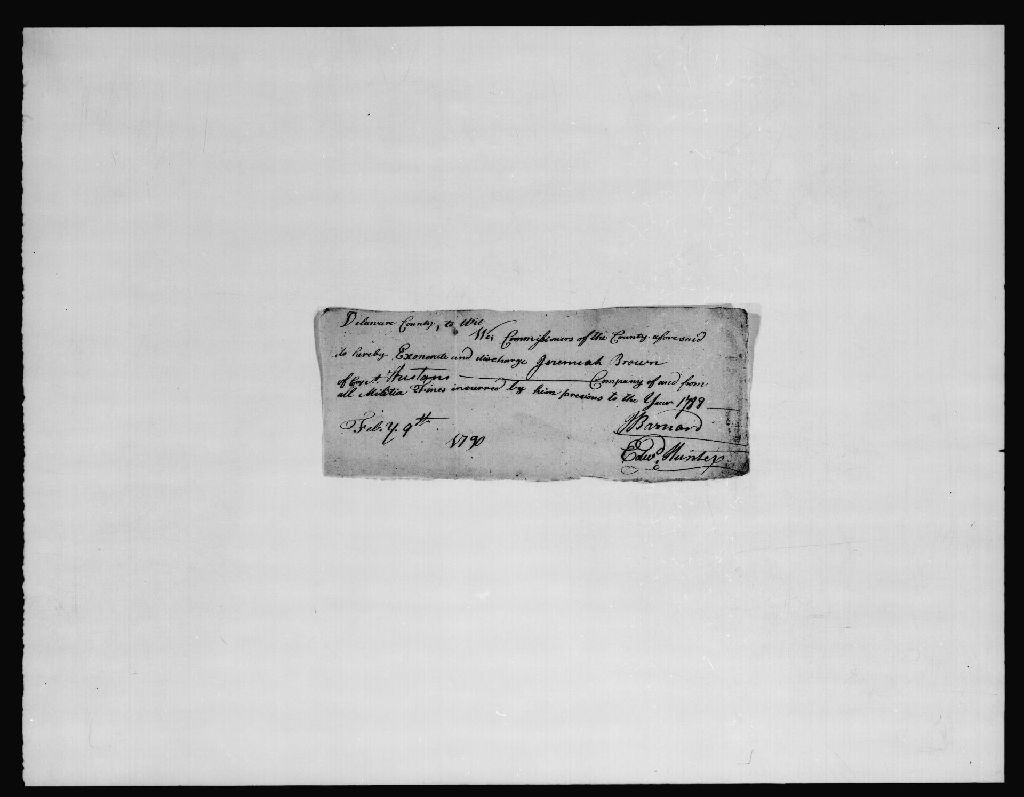 Delaware County, to Wit
We, Commissioners of the County aforesaid
do hereby Exonerate and discharge Jeremiah Brown
of Capt. Austyns Company of and from
all Militia Fines incurred by him previous to the Year 1788
Feb. y. 9th
1790
JBarnard
Edwd. Hunter